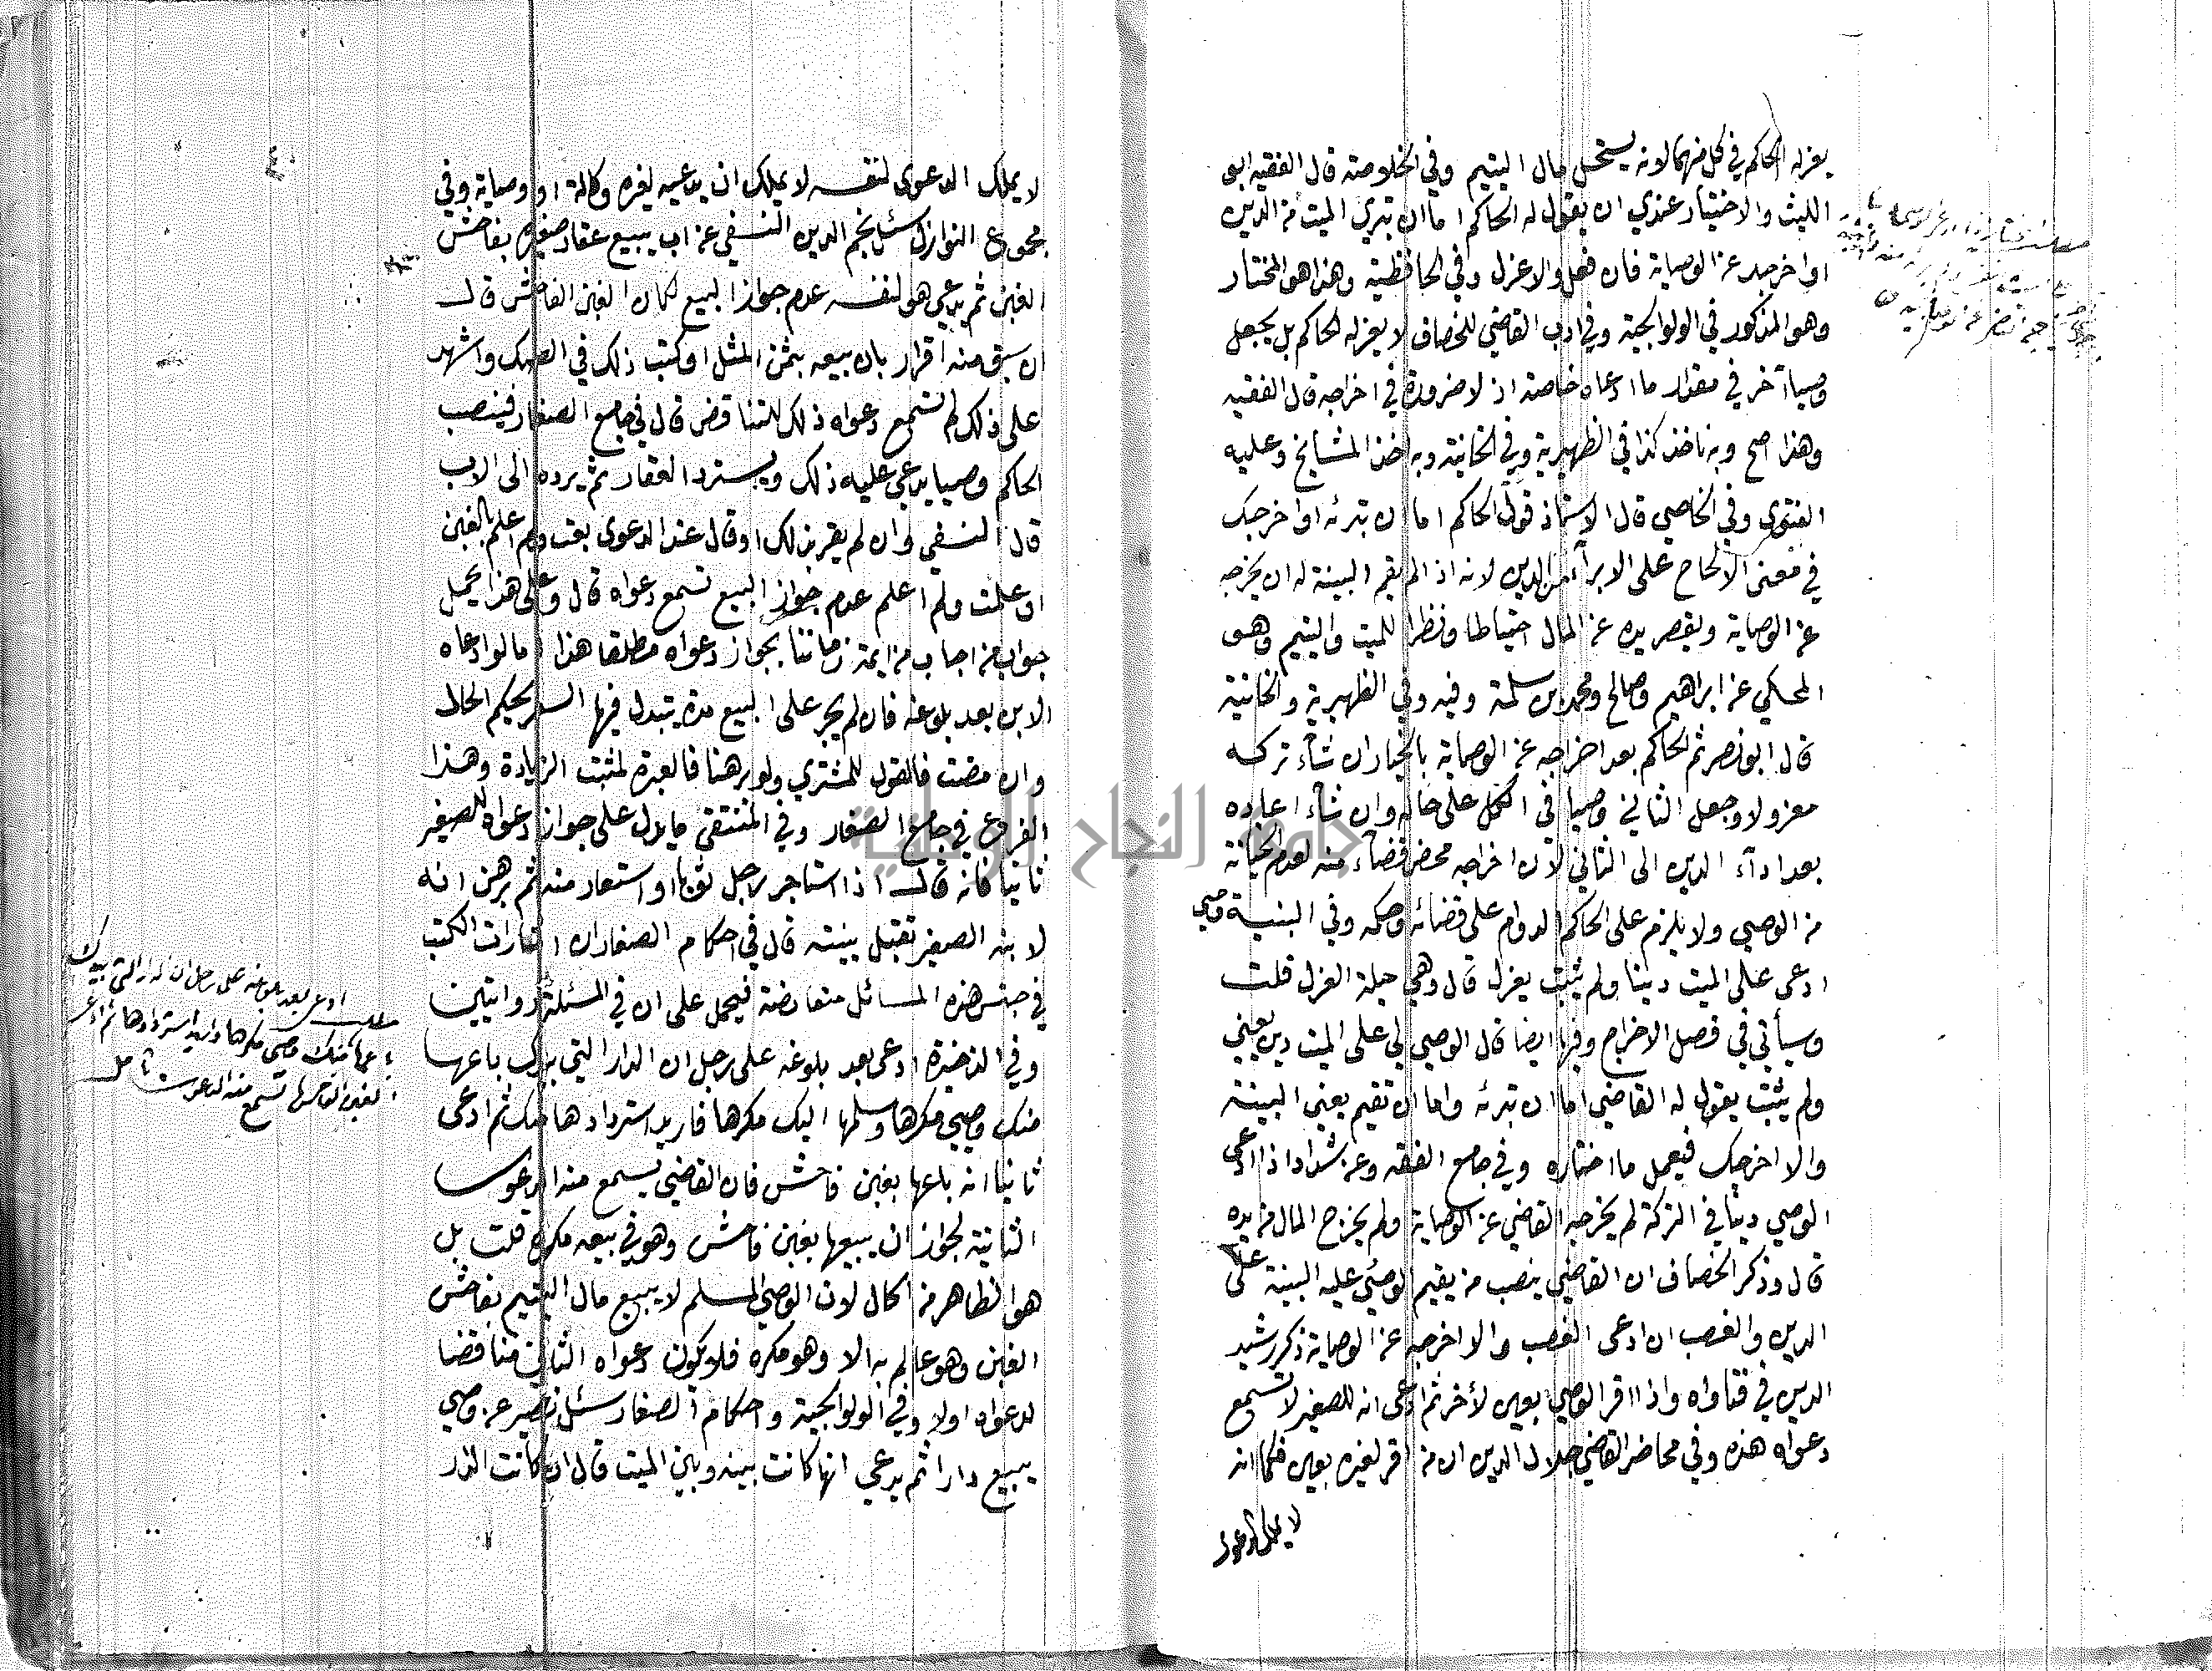 يعزله الحاكم في كل منهما لانه يستحل مال اليتيم وفي الخلاصة قال الفقيه ابو
الليث والاختيار عندي ان يقول له الحاكم اما ان تبري الميت من الدين
او اخرجك عن الوصاية فان فعل والا عزل وفي الحافظية وهذا هو المختار
وهو المذكور في الولوالجية وفي ادب القاضي للخصاف لا يعزله الحاكم بل يجعل
وصيا آخر في مقدار ما ادعاه خاصة اذ لا ضرورة في اخراجه قال الفقيه
وهذا اصح وبه ناخذ كذا في الظهيرية وفي الخانية وبه اخذ المشايخ وعليه
الفتوى وفي الخاصي قال الاستاذ قول الحاكم اما ان تبرئه او اخرجك
في معنى الالحاح على الابرآء من الدين لانه اذا لم يقم البينة له ان يخرجه
عن الوصاية ويقصر يده عن المال احتياطا ونظرا للميت واليتيم وهو
المحكي عن ابراهيم وصالح ومحمد بن سلمة وفيه وفي الظهيرية والخانية
قال ابو نصر ثم الحاكم بعد اخراجه عن الوصاية بالخيار ان شآء تركه
معزولا وجعل الثاني وصيا في الكل على حاله وان شآء اعاده
بعد ادآء الدين الى الثاني لان اخراجه محض قضآء منه لعدم الخيانة
من الوصي ولا يلزم على الحاكم الدوام على قضائه وحكمه وفي البنية وصي
ادعى على الميت دينا ولم يثبت يعزل قال وهي حيلة العزل قلت
وسيأتي في فصل الاخراج وفيها ايضا قال الوصي لي على الميت دين يعني
ولم يثبت يقول له القاضي اما ان تبرئه واما ان تقيم يعني البينة
والا اخرجك فيعمل ما اختاره وفي جامع الفقه وعن شداد اذا ادعى
الوصي دينا في التركة لم يخرجه القاضي عن الوصاية ولم يخرج المال من يده
قال وذكر الخصاف ان القاضي ينصب من يقيم الوصي عليه البينة على
الدين والغصب ان ادعى الغصب والا اخرجه عن الوصاية ذكر رشيد
الدين في فتاواه واذا اقر الوصي بعين لآخر ثم ادعى انه للصغير لا تسمع
دعواه هذه وفي محاضر القاضي جلال الدين ان من اقر لغيره بعين فكما انه
لا يملك الدعوى
لا يملك الدعوى لنفسه لا يملك ان يدعيه لغيره وكالة او وصاية وفي
مجموع النوازل سئل نجم الدين النسفي عن اب يبيع عقار صغيره بفاحش
الغبن ثم يدعي هو لنفسه عدم جواز البيع لمكان الغبن الفاحش قال
ان سبق منه اقرار بان بيعه بثمن المثل او كتب ذلك في الصك واشهد
على ذلك لم تسمع دعواه ذلك للتناقض قال في جامع الصغار فينصب
الحاكم وصيا يدعي عليه ذلك ويسترد العقار ثم يرده الى الاب
قال النسفي وان لم يقر بذلك او قال عند الدعوى بعت ولم اعلم بالغبن
او علمت ولم اعلم عدم جواز البيع تسمع دعواه قال وعلى هذا يحمل
جواب من اجاب من ايمة زماننا بجواز دعواه مطلقا هذا اما لو ادعاه
الابن بعد بلوغه فان لم يجر على البيع مدة يتبدل فيها السعر يحكم الحال
وان مضت فالقول للمشتري ولو برهنا فالعبرة لمثبت الزيادة وهذا
الفروع في جامع الصغار وفي المنتقى ما يدل على جواز دعواه للصغير
ثانيا فانه قال اذا استاجر رجل ثوبا او استعار منه ثم برهن انه
لابنه الصغير تقبل بينته قال في احكام الصغار ان اشارات الكتب
في جنس هذه المسائل متعارضة فيحمل على ان في المسئلة روايتين
وفي الذخيرة ادعى بعد بلوغه على رجل ان الدار التي بيدك باعها
منك وصيي مكرها وسلمها اليك مكرها فاريد استردادها منك ثم ادعى
ثانيا انه باعها بغبن فاحش فان القاضي يسمع منه الدعوى
الثانية لجواز ان يبيعها بغبن فاحش وهو في بيعه مكره قلت بل
هو الظاهر من الحال لان الوصي المسلم لا يبيع مال اليتيم بفاحش
الغبن وهو عالم به الا وهو مكره فلا تكون دعواه الثاني مناقضا
لدعواه اولا وفي الولوالجية واحكام الصغار سئل نصير عن وصي
يبيع دارا ثم يدعي انها كانت بينه وبين الميت قال ان كانت الدار
ادعى بعد بلوغه على رجل ان الدار التي بيدك
باعها منك وصيي مكرها واريد استردادها ثم ادعى
الغبن الفاحش تسمع منه الدعوى
جامعة النجاح الوطنية